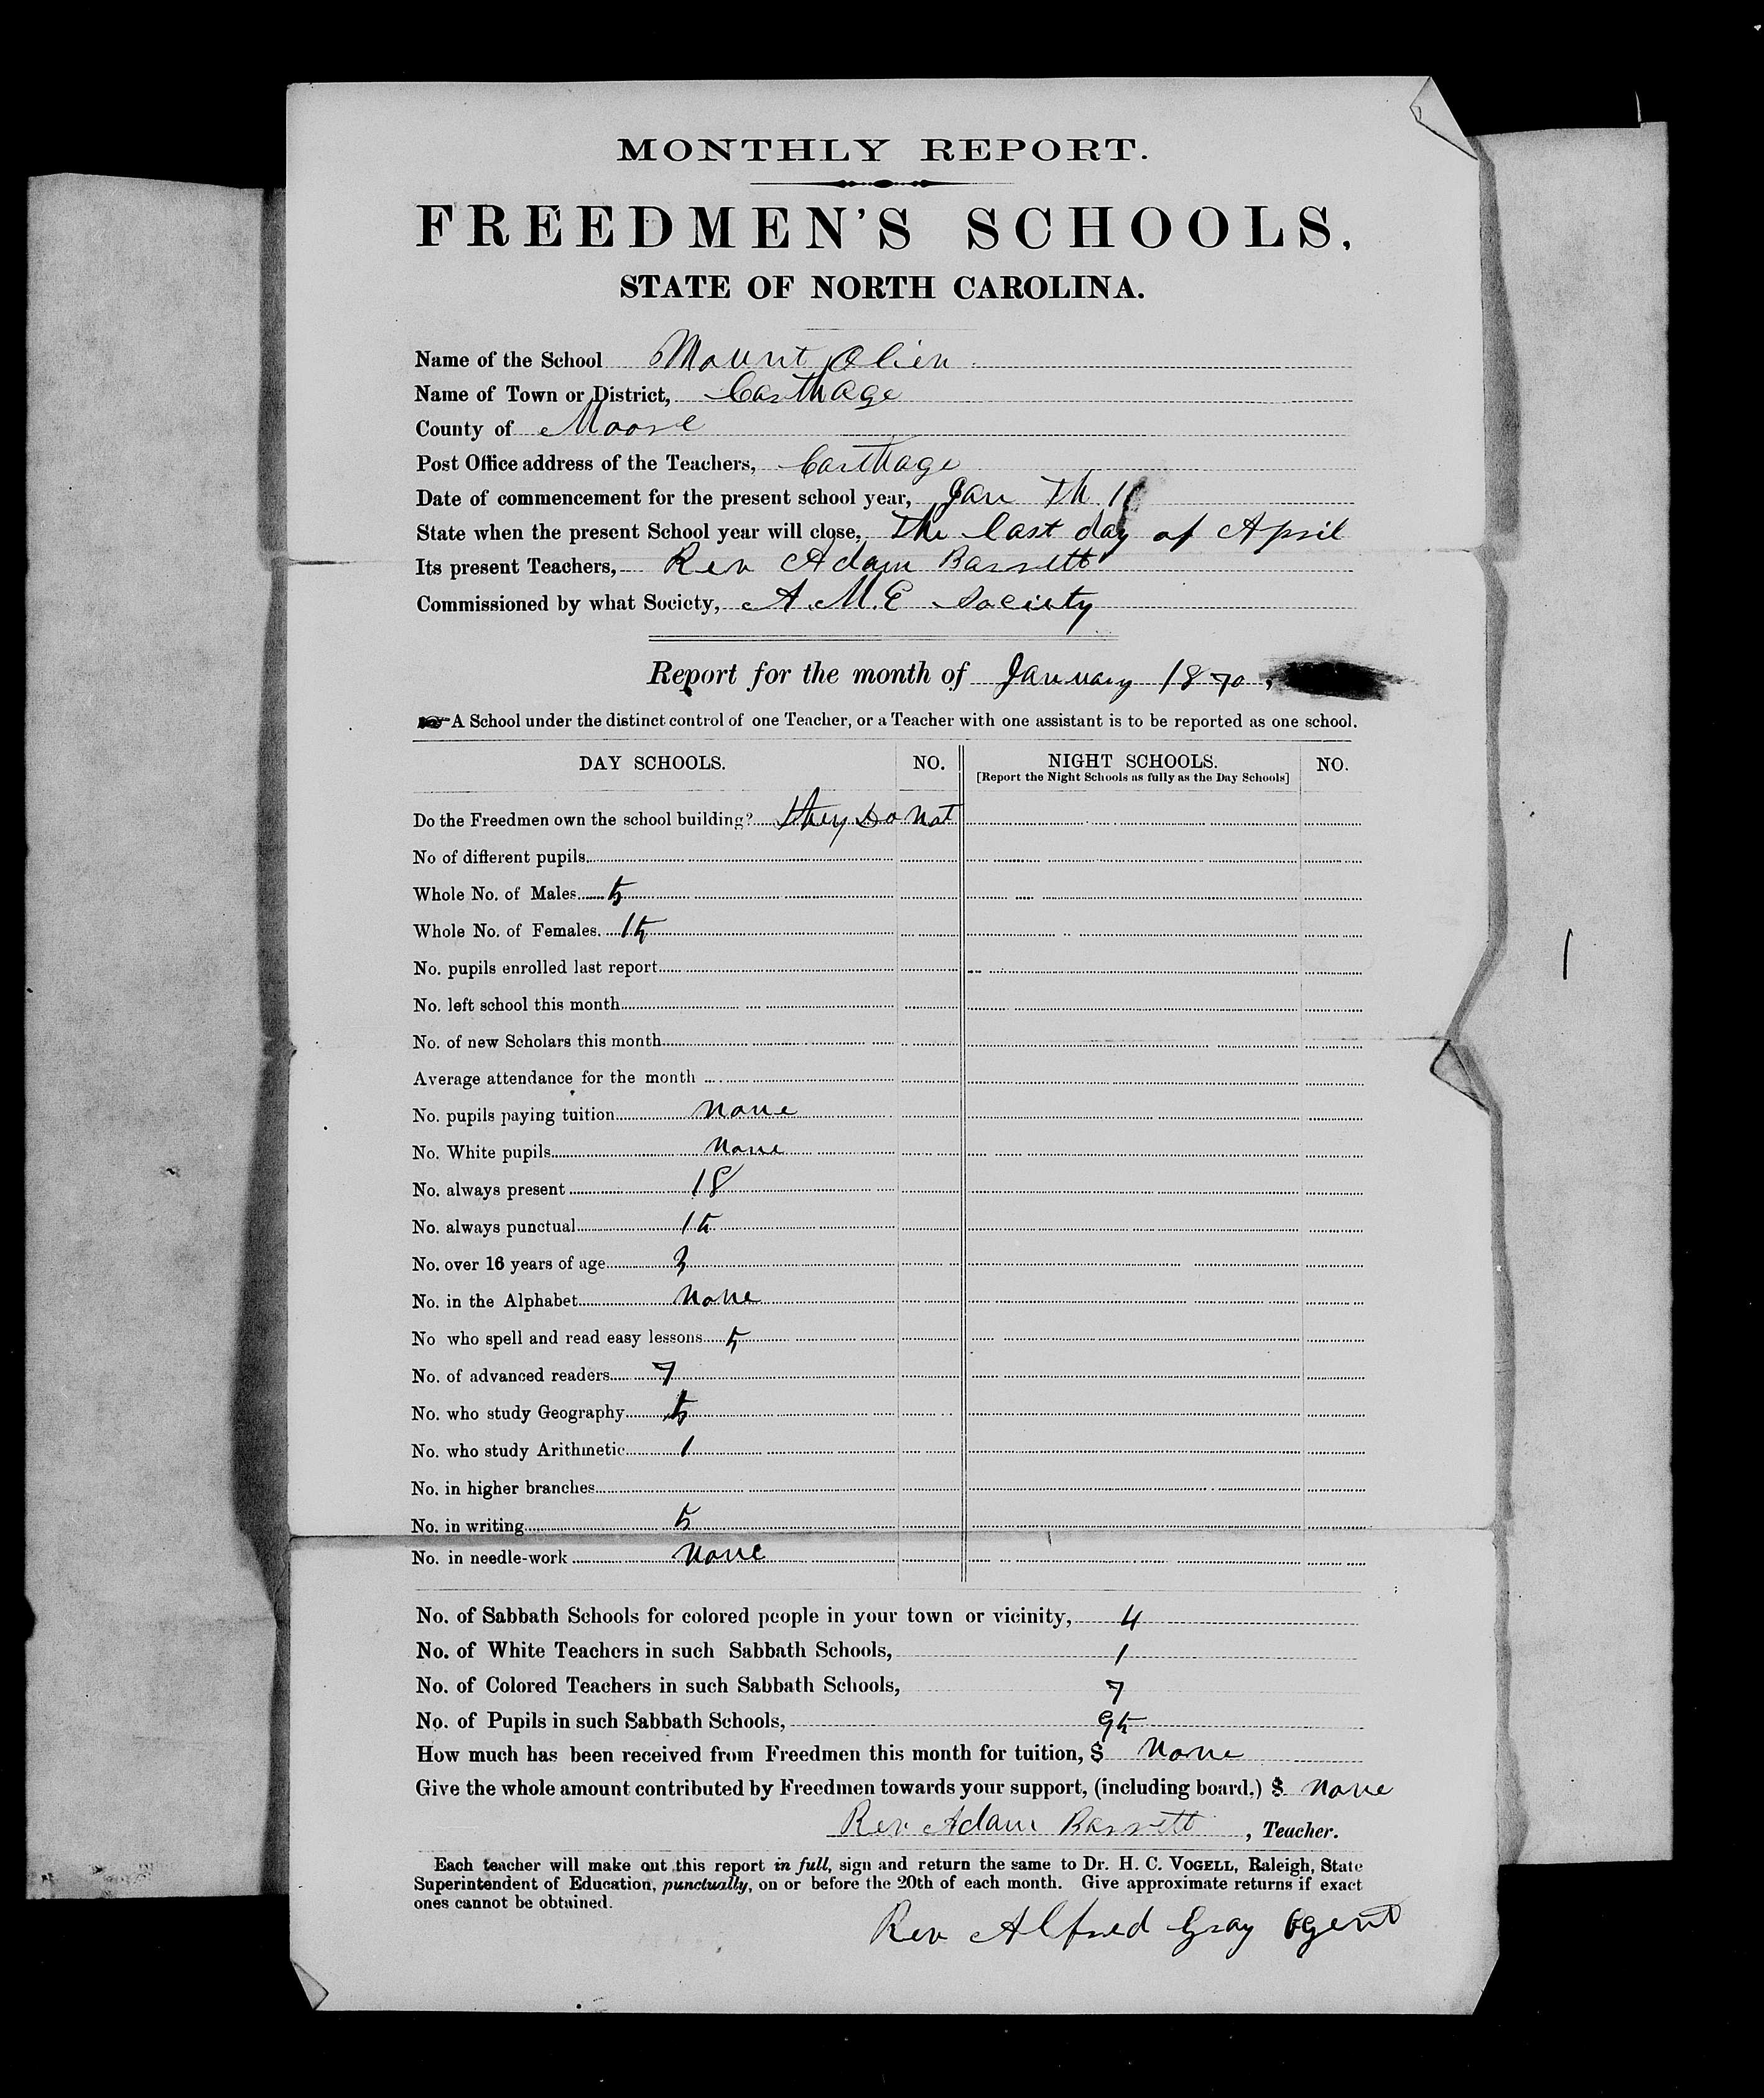 MONTHLY REPORT.
FREEDMEN'S SCHOOLS,
STATE OF NORTH CAROLINA.
Name of the School Mount Olien
Name of Town or District, Carthage
County of Moore
Post Office address of the Teachers, Carthage
Date of commencement for the present school year, Jan Th 11
State when the present School year will close, The last day of April
Its present Teachers, Rev Adam Barrett
Commissioned by what Society, A. M. E Society
Report for the month of January 1870,
A School under the distinct control of one Teacher, or a Teacher with one assistant is to be reported as one school.
DAY SCHOOLS. NO. NIGHT SCHOOLS. NO.
[Report the Night Schools as fully as the Day Schools]
Do the Freedmen own the school building? they Do Not
No of different pupils
Whole No. of Males 5
Whole No. of Females. 15
No. pupils enrolled last report
No. left school this month
No. of new Scholars this month
Average attendance for the month
No. pupils paying tuition None
No. White pupils None
No. always present 18
No. always punctual 15
No. over 16 years of age 3
No. in the Alphabet None
No who spell and read easy lessons 5
No. of advanced readers 7
No. who study Geography 5
No. who study Arithmetic 1
No. in higher branches
No. in writing 5
No. in needle-work None
No. of Sabbath Schools for colored people in your town or vicinity, 4
No. of White Teachers in such Sabbath Schools, 1
No. of Colored Teachers in such Sabbath Schools, 7
No. of Pupils in such Sabbath Schools, 95
How much has been received from Freedmen this month for tuition, $ None
Give the whole amount contributed by Freedmen towards your support, (including board,) $ None
Rev Adam Barrett, Teacher.
Each teacher will make out this report in full, sign and return the same to Dr. H. C. VOGELL, Raleigh, State
Superintendent of Education, punctually, on or before the 20th of each month. Give approximate returns if exact
ones cannot be obtained.
Rev Alfred Gray Agent